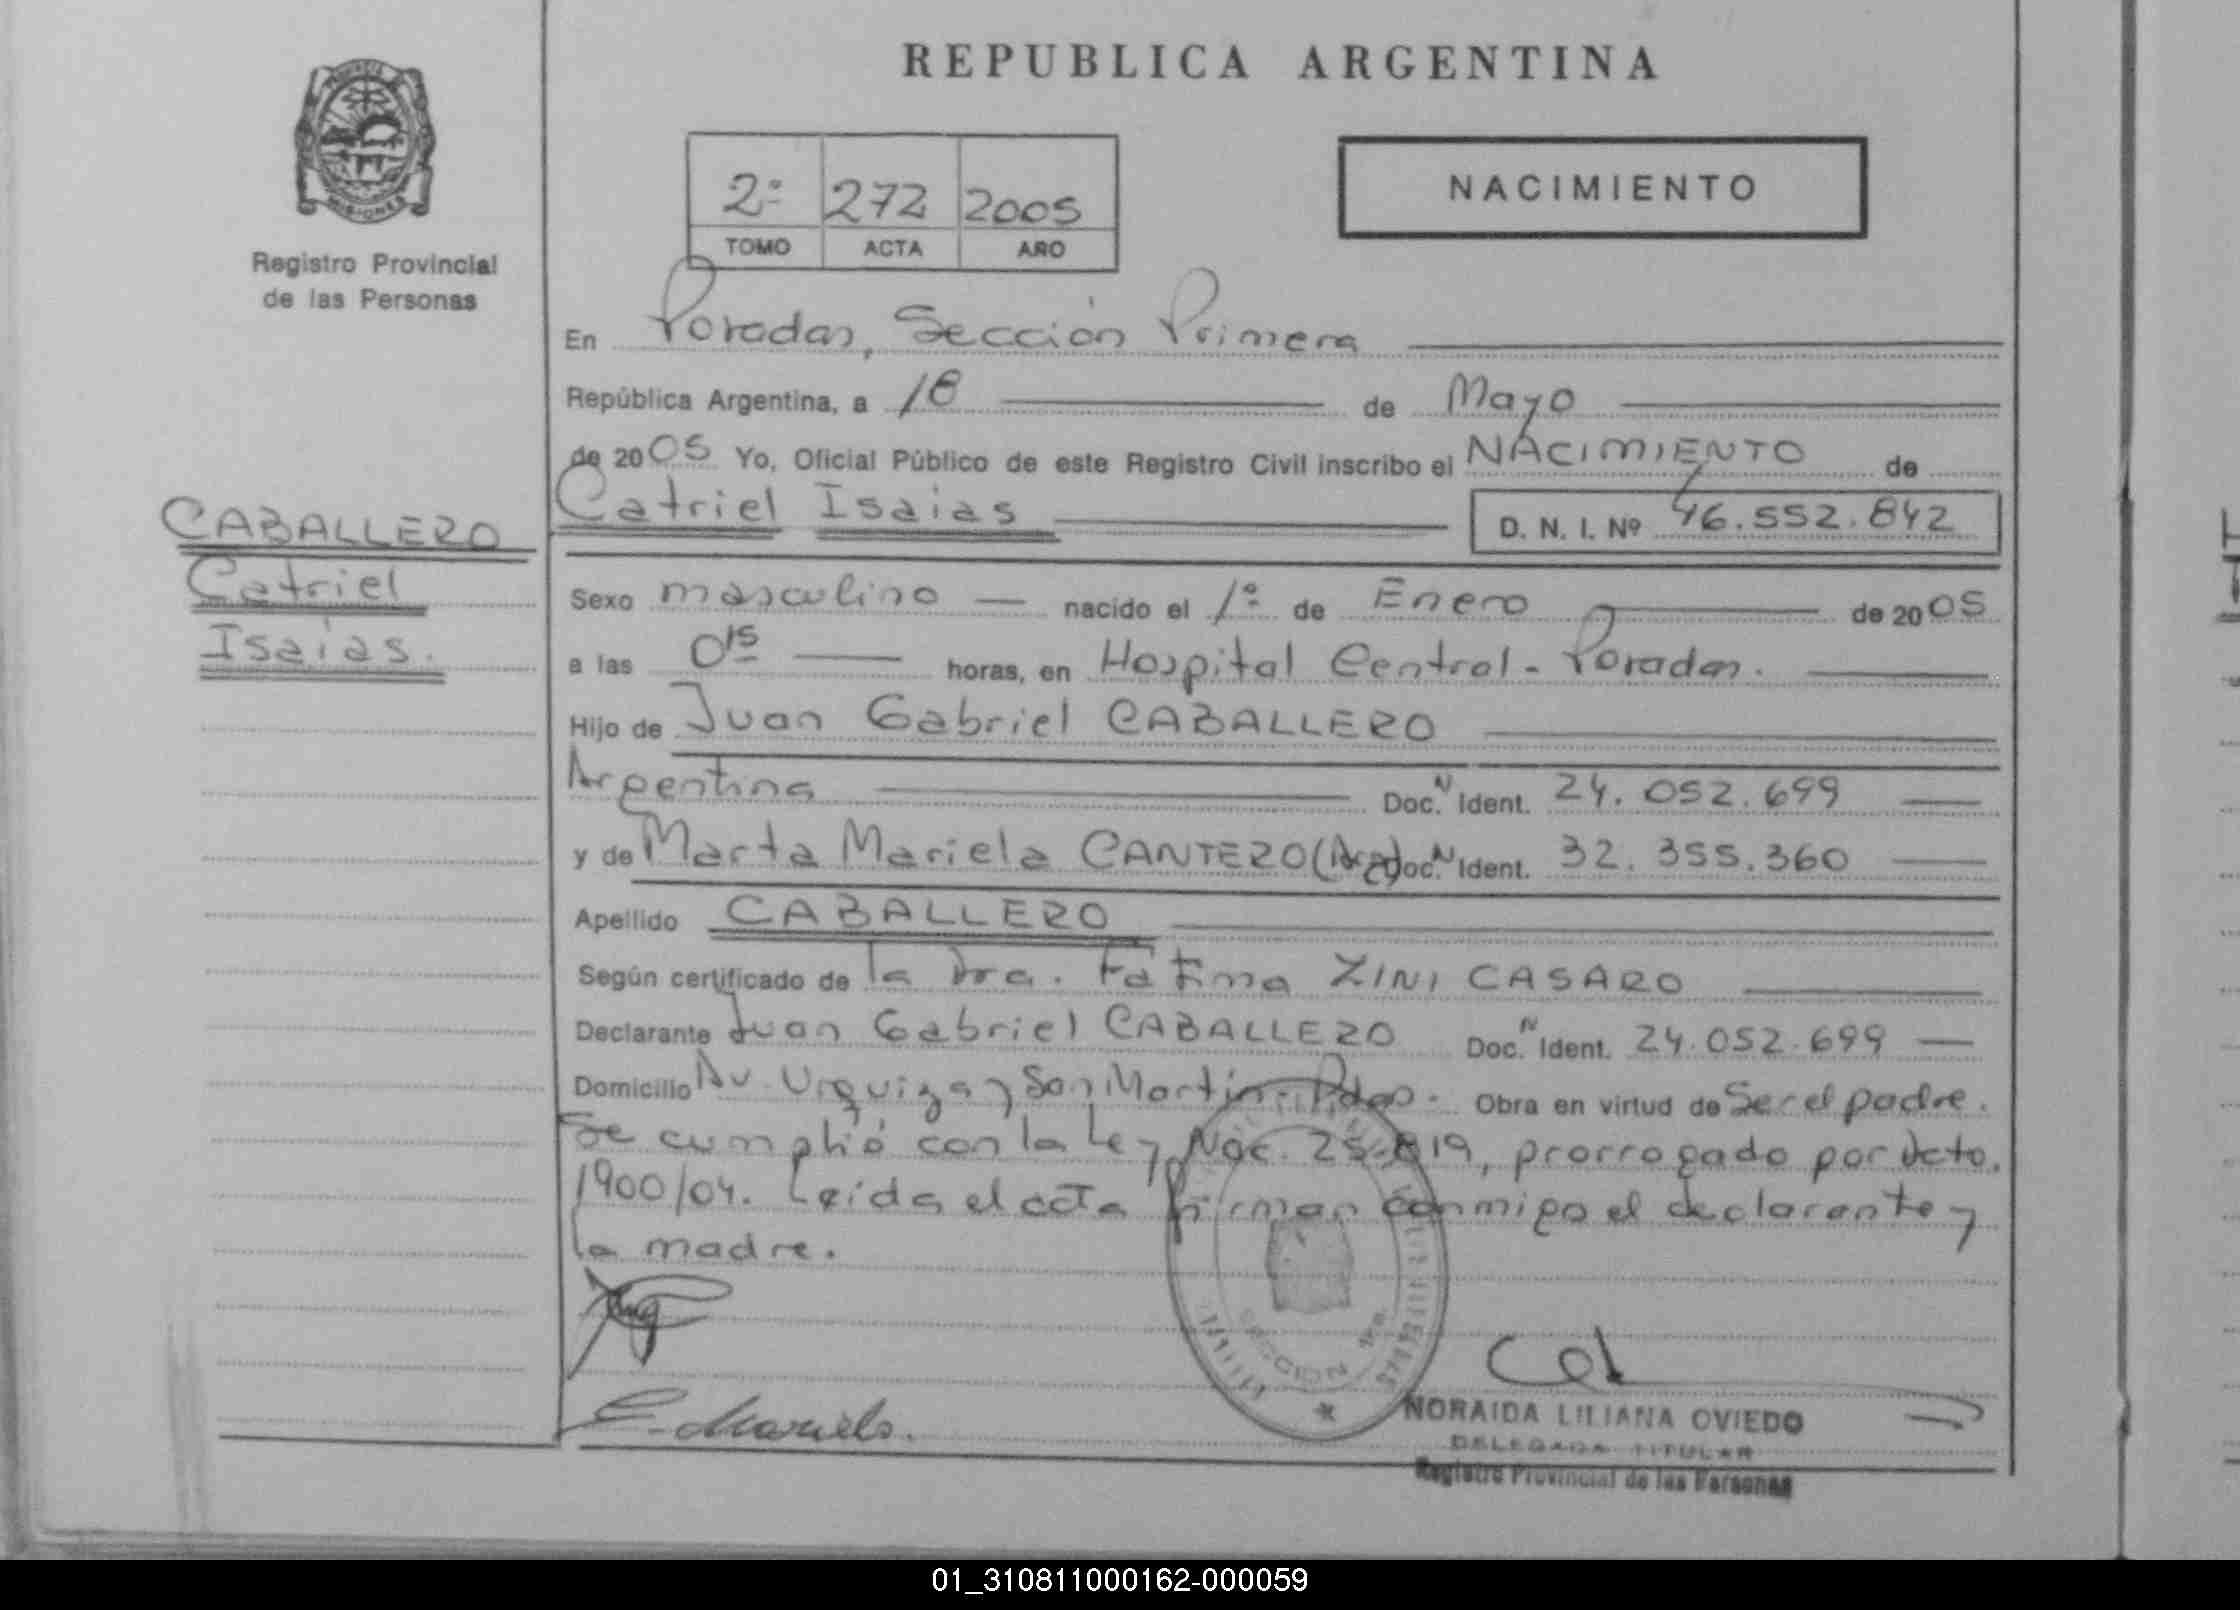 REPUBLICA ARGENTINA
MISIONES
Registro Provincial
de las Personas
2º 272 2005
TOMO ACTA AÑO
NACIMIENTO
En Posadas, Sección Primera
República Argentina, a 18 de Mayo
de 2005 Yo, Oficial Público de este Registro Civil inscribo el NACIMIENTO de
Catriel Isaias D. N. I. Nº 46.552.842
CABALLERO
Catriel
Isaias.
Sexo masculino nacido el 1º de Enero de 2005
a las 015 horas, en Hospital Central - Posadas.
Hijo de Juan Gabriel CABALLERO
Argentina Doc. N Ident. 24.052.699
y de Marta Mariela CANTERO (Arg) Doc. N Ident. 32.355.360
Apellido CABALLERO
Según certificado de la Dra. Fatima ZINI CASARO
Declarante Juan Gabriel CABALLERO Doc. N Ident. 24.052.699
Domicilio Av. Urquiza y San Martin - Pdas. Obra en virtud de Ser el padre.
Se cumplió con la Ley Nac. 25.819, prorrogado por Dcto.
1900/04. Leída el acta firman conmigo el declarante y
la madre.
SECCION 1ra.
Mariela.
NORAIDA LILIANA OVIEDO
DELEGADA TITULAR
Registro Provincial de las Personas
01_310811000162-000059